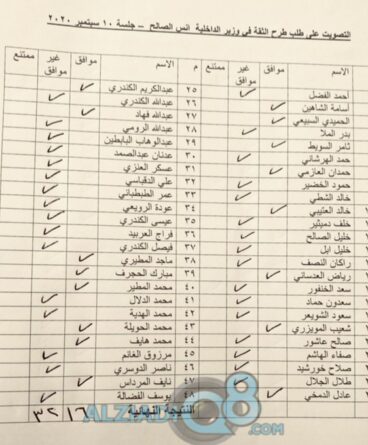 التصويت على طلب طرح الثقة في وزير الداخلية انس الصالح – جلسة ١٠ سبتمبر ٢٠٢٠
الاسم موافق غير موافق ممتنع م الاسم موافق غير موافق ممتنع
أحمد الفضل ✓ ٢٥ عبدالكريم الكندري ✓
أسامة الشاهين ✓ ٢٦ عبدالله الكندري ✓
الحميدي السبيعي ✓ ٢٧ عبدالله فهاد ✓
بدر الملا ✓ ٢٨ عبدالله الرومي ✓
ثامر السويط ✓ ٢٩ عبدالوهاب البابطين ✓
حمد الهرشاني ✓ ٣٠ عدنان عبدالصمد ✓
حمدان العازمي ✓ ٣١ عسكر العنزي ✓
حمود الخضير ✓ ٣٢ علي الدقباسي ✓
خالد الشطي ✓ ٣٣ عمر الطبطبائي ✓
خالد العتيبي ✓ ٣٤ عودة الرويعي ✓
خلف دميثير ✓ ٣٥ عيسى الكندري ✓
خليل الصالح ✓ ٣٦ فراج العربيد ✓
خليل ابل ✓ ٣٧ فيصل الكندري ✓
راكان النصف ✓ ٣٨ ماجد المطيري ✓
رياض العدساني ✓ ٣٩ مبارك الحجرف ✓
سعد الخنفور ✓ ٤٠ محمد المطير ✓
سعدون حماد ✓ ٤١ محمد الدلال ✓
سعود الشويعر ✓ ٤٢ محمد الهدية ✓
شعيب المويزري ✓ ٤٣ محمد الحويلة ✓
صالح عاشور ✓ ٤٤ محمد هايف ✓
صفاء الهاشم ✓ ٤٥ مرزوق الغانم ✓
صلاح خورشيد ✓ ٤٦ ناصر الدوسري ✓
طلال الجلال ✓ ٤٧ نايف المرداس ✓
عادل الدمخي ✓ ٤٨ يوسف الفضالة ✓
النتيجة النهائية ١٦ ٣٢
ALZIADIQ8.COM